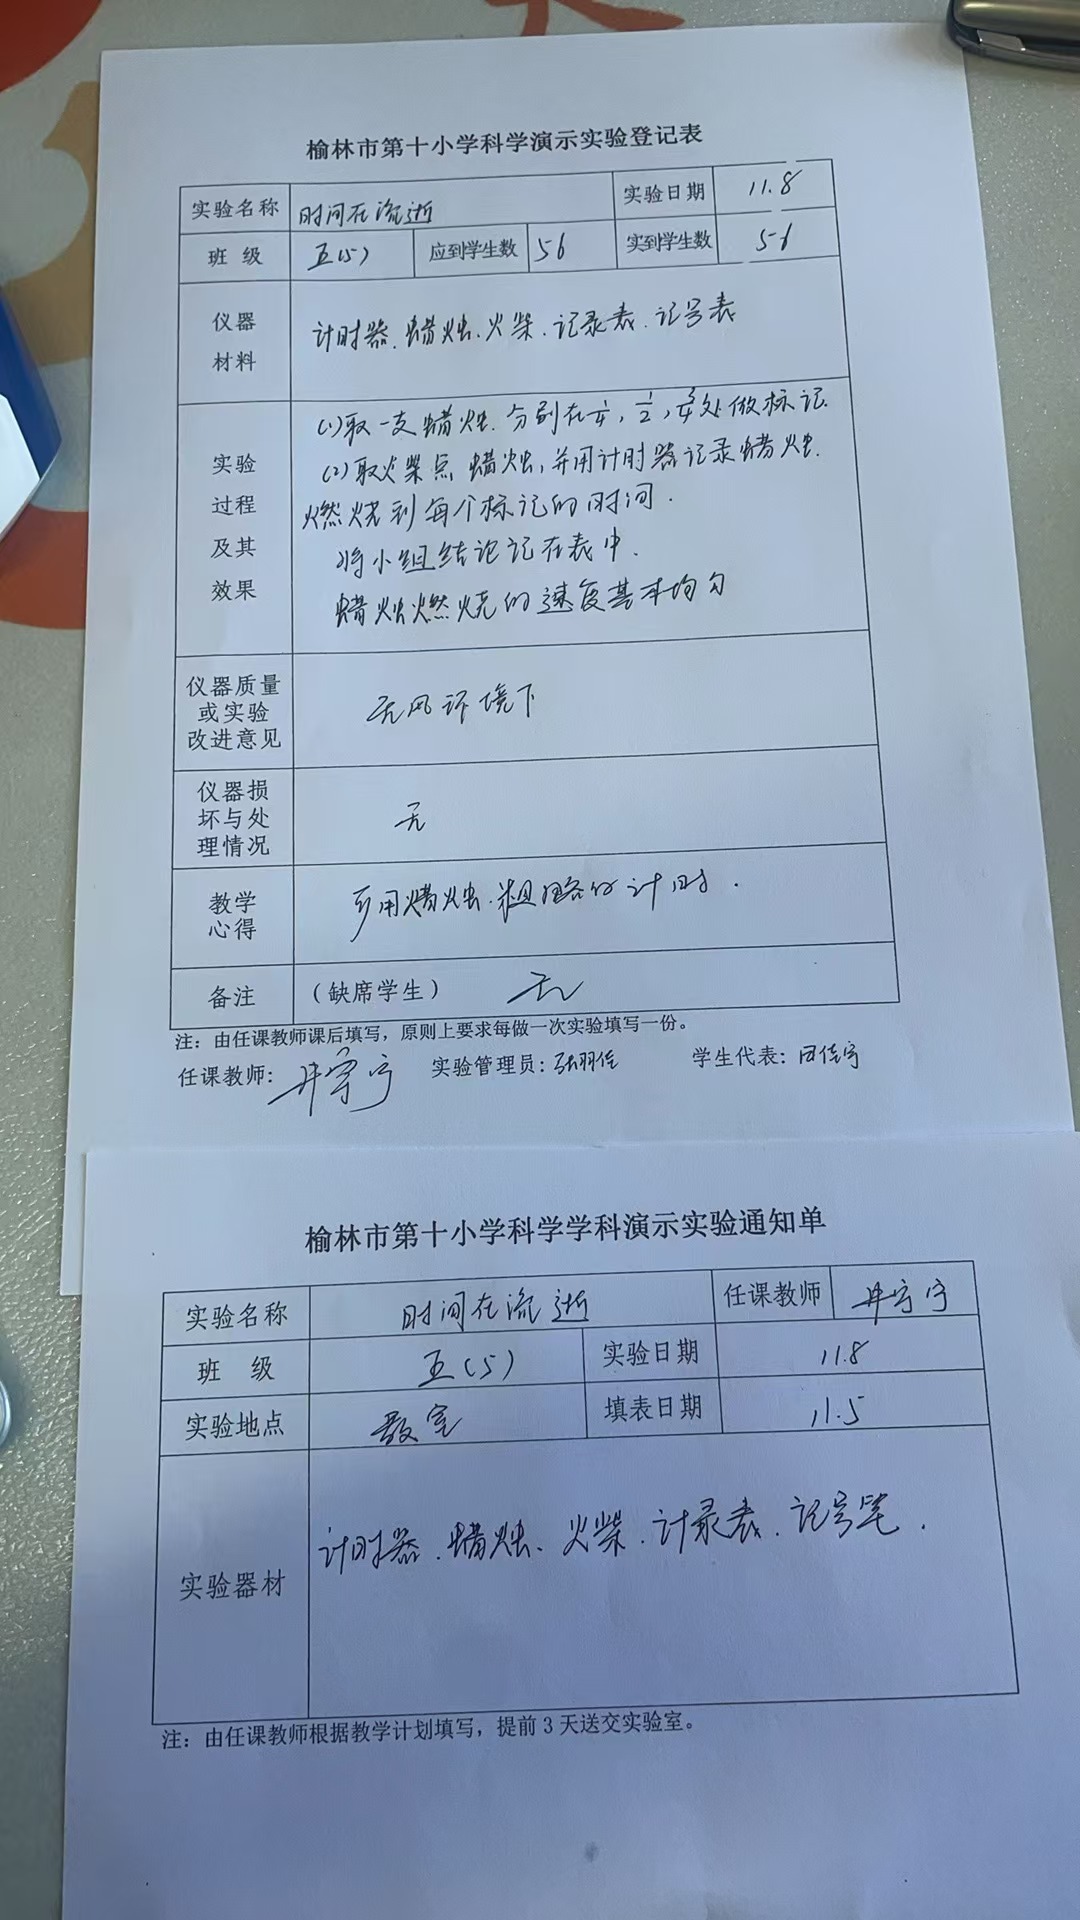 榆林市第十小学科学演示实验登记表
实验名称 时间在流逝 实验日期 11.8
班 级 五(5) 应到学生数 56 实到学生数 56
仪器
材料
计时器、蜡烛、火柴、记录表、记号表
实验
过程
及其
效果
(1)取一支蜡烛、分别在1/4,1/2,3/4处做标记.
(2)取火柴点蜡烛,并用计时器记录蜡烛.
燃烧到每个标记的时间.
将小组结论记在表中.
蜡烛燃烧的速度基本均匀
仪器质量
或实验
改进意见
无风环境下
仪器损
坏与处
理情况
无
教学
心得
可用蜡烛、粗略的计时.
备注 (缺席学生) 无
注：由任课教师课后填写，原则上要求每做一次实验填写一份。
任课教师：井宇宁 实验管理员：张羽佳 学生代表：田佳宇
榆林市第十小学科学学科演示实验通知单
实验名称 时间在流逝 任课教师 井宇宁
班 级 五(5) 实验日期 11.8
实验地点 教室 填表日期 11.5
实验器材 计时器、蜡烛、火柴、计录表、记号笔.
注：由任课教师根据教学计划填写，提前 3 天送交实验室。